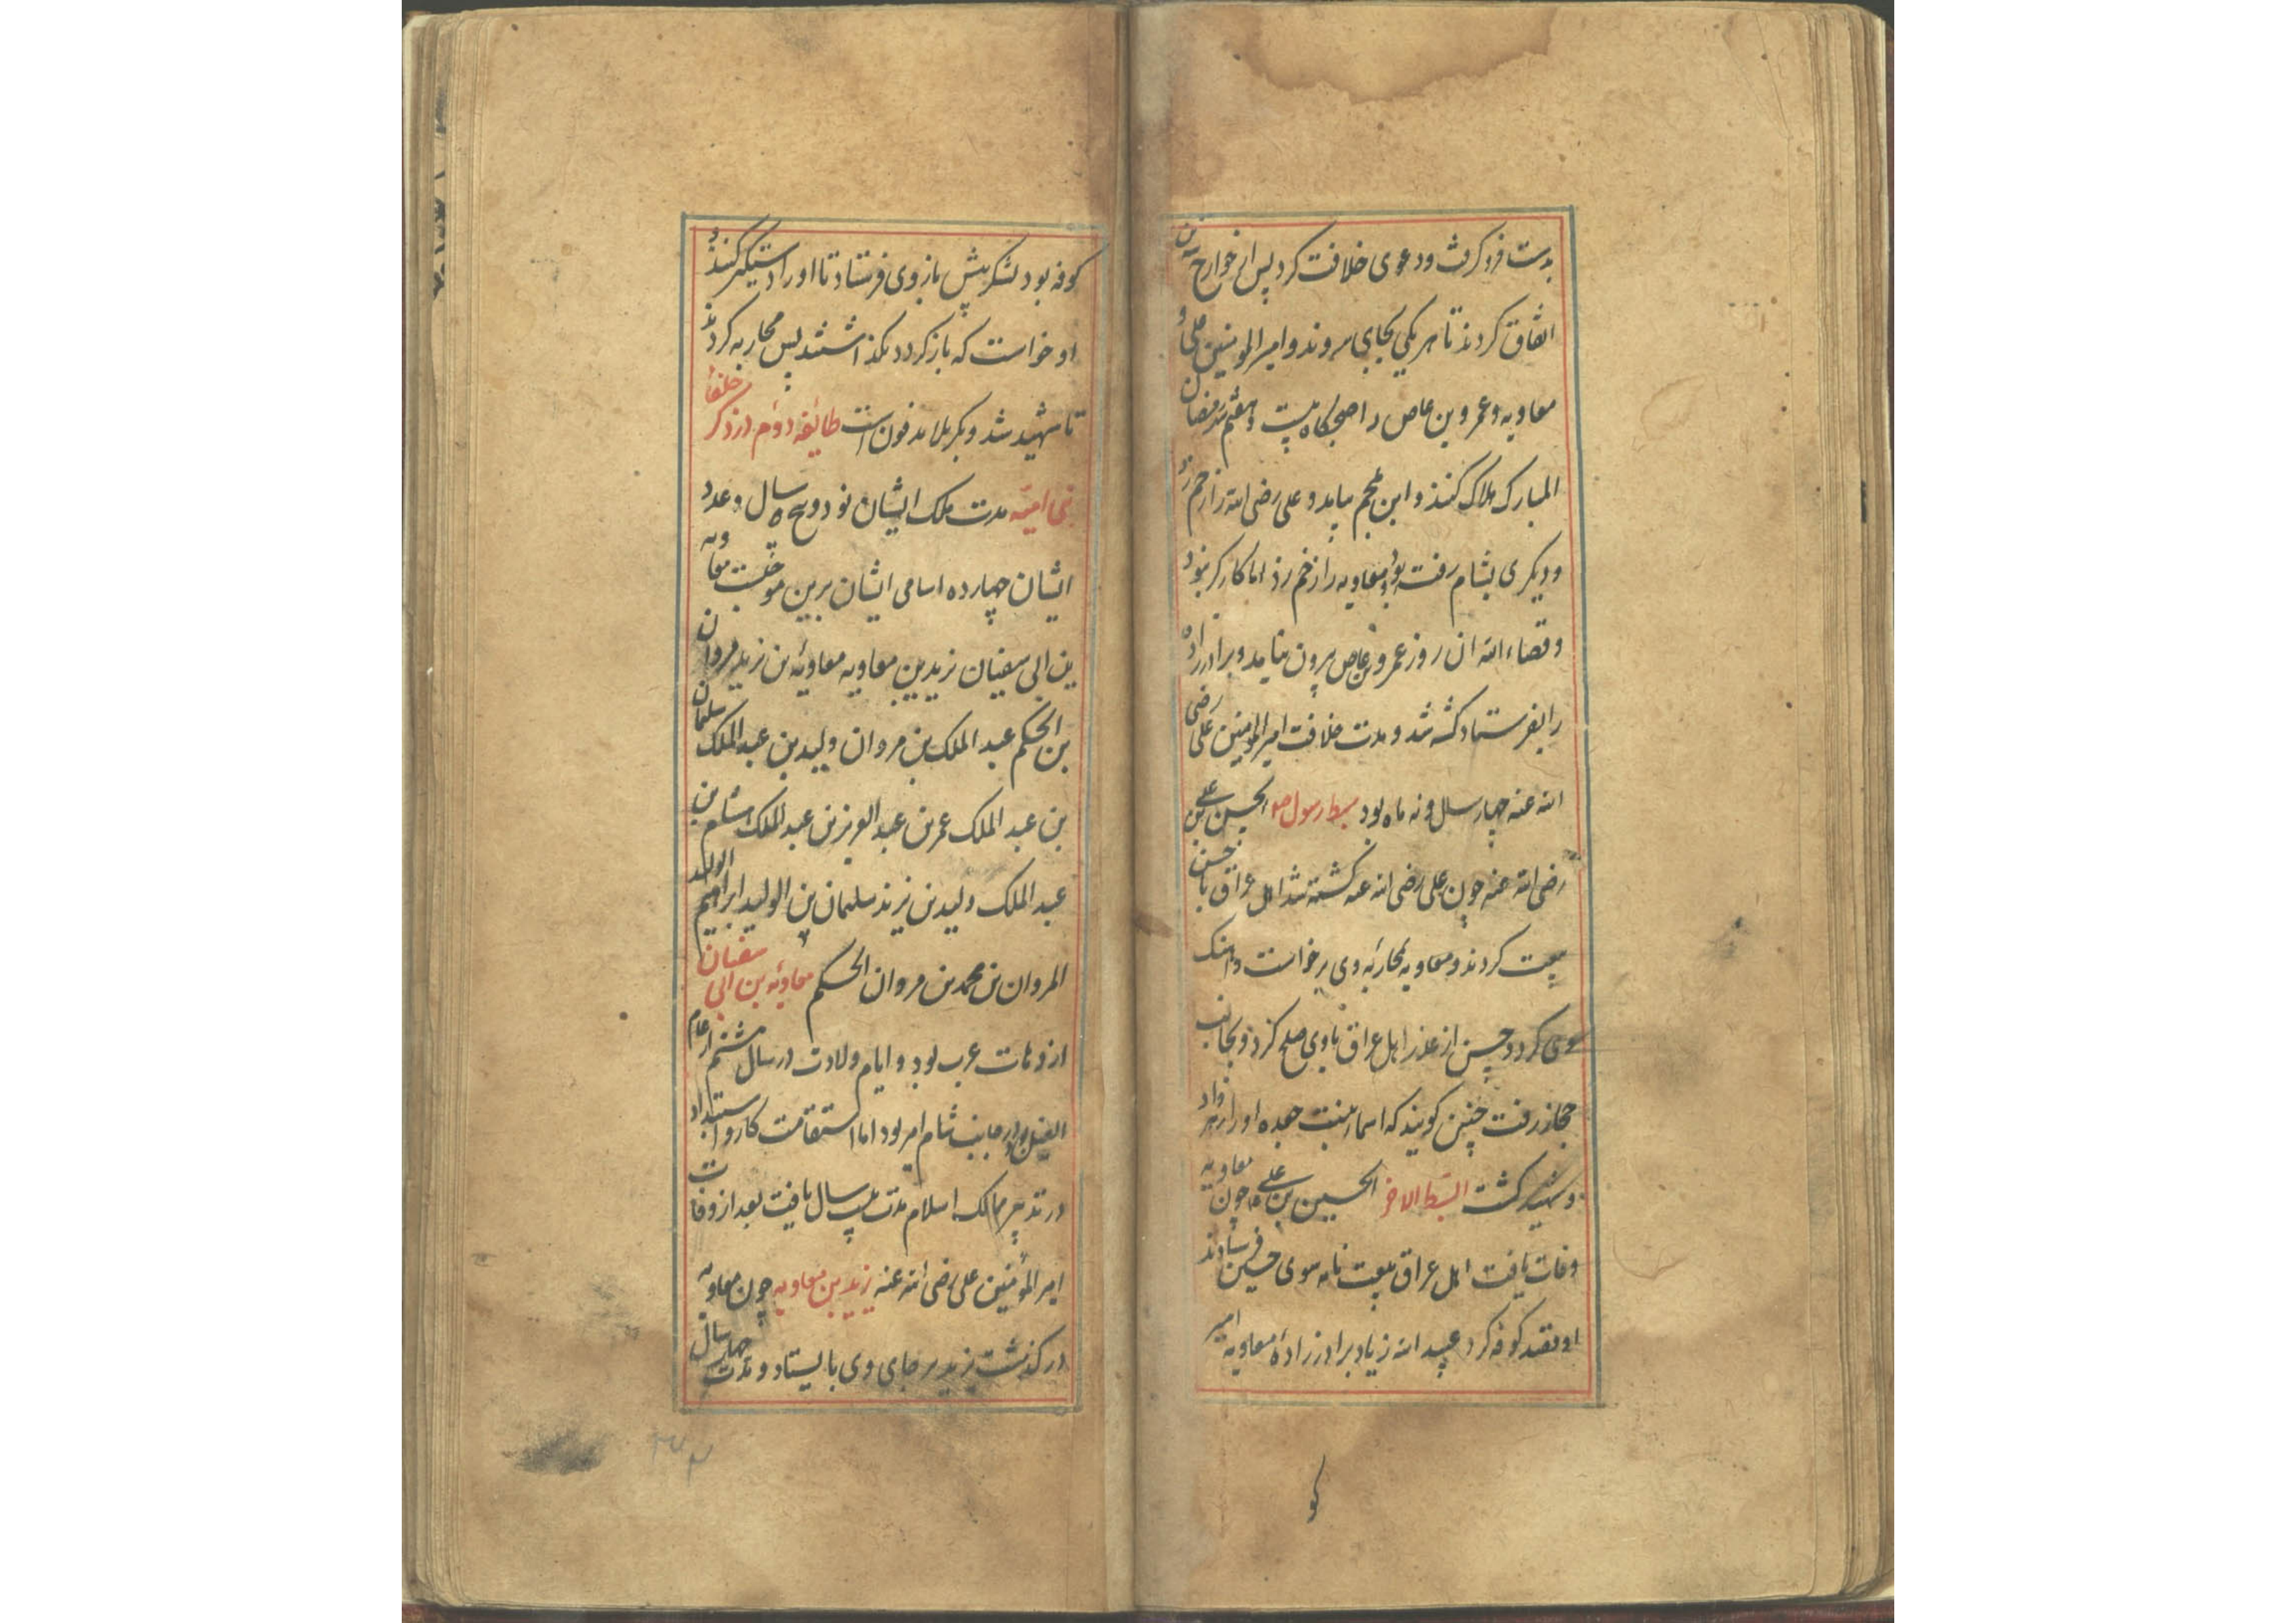 بدست فرو کرفت ودعوی خلافت کرد پس از خوارج سه تن
اتفاق کردند تا هر یکی بجایی روند و امیر المومنین علی و
معاویه و عمرو بن عاص را صبحکاه بیست و هفتم رمضان
المبارک هلاک کنند و ابن ملجم بیامد و علی رضی الله را زخم زد
ودیکری بشام رفته بود معاویه را زخم زد اما کارکر نبود
وقضاء الله ان روز عمرو بن عاص بیرون نیامد و برادرزاده
را بفرستاد کشته شد و مدت خلافت امیر المومنین علی رضی
الله عنه چهار سال ونه ماه بود سبط رسول الحسن بن علی
رضی الله عنه چون علی رضی الله عنه کشته شد اهل عراق با حسن
بیعت کردند و معاویه بمحاربه وی برخواست واهنک
وی کرد وحسن از غدر اهل عراق باوی صلح کرد و بجانب
حجاز رفت چنین کویند که اسماء بنت جعده او را زهر داد
وشهید کشت السبط الاخر الحسین بن علی چون معاویه
وفات یافت اهل عراق بیعت نامه سوی حسین فرستادند
او قصد کوفه کرد عبید الله زیاد برادرزاده معاویه امیر
کو
کوفه بود لشکر پیش باز وی فرستاد تا او را دستکیر کنند و
او خواست که باز کردد نکذاشتند پس محاربه کردند
تا شهید شد و بکربلا مدفون است طائفه دوم در ذکر خلفاء
بنی امیه مدت ملک ایشان نود و پنج سال و عدد
ایشان چهارده اسامی ایشان برین موجبست معاویه
بن ابی سفیان یزید بن معاویه معاویه بن یزید مروان
بن الحکم عبد الملک بن مروان ولید بن عبد الملک سلیمان
بن عبد الملک عمر بن عبد العزیز بن عبد الملک هشام بن
عبد الملک ولید بن یزید سلیمان بن الولید ابراهیم الولید
المروان بن محمد بن مروان الحکم معاویه بن ابی سفیان
از دهات عرب بود و ایام ولادت در سال هشتم از عام
الفیل بود در جانب شام امیر بود اما استقامت کار و استبداد
در تدبیر ممالک اسلام مدت بیست سال یافت بعد از وفات
امیر المؤمنین علی رضی الله عنه یزید بن معاویه چون معاویه
درکذشت یزید بر جای وی بایستاد و مدت چهار سال